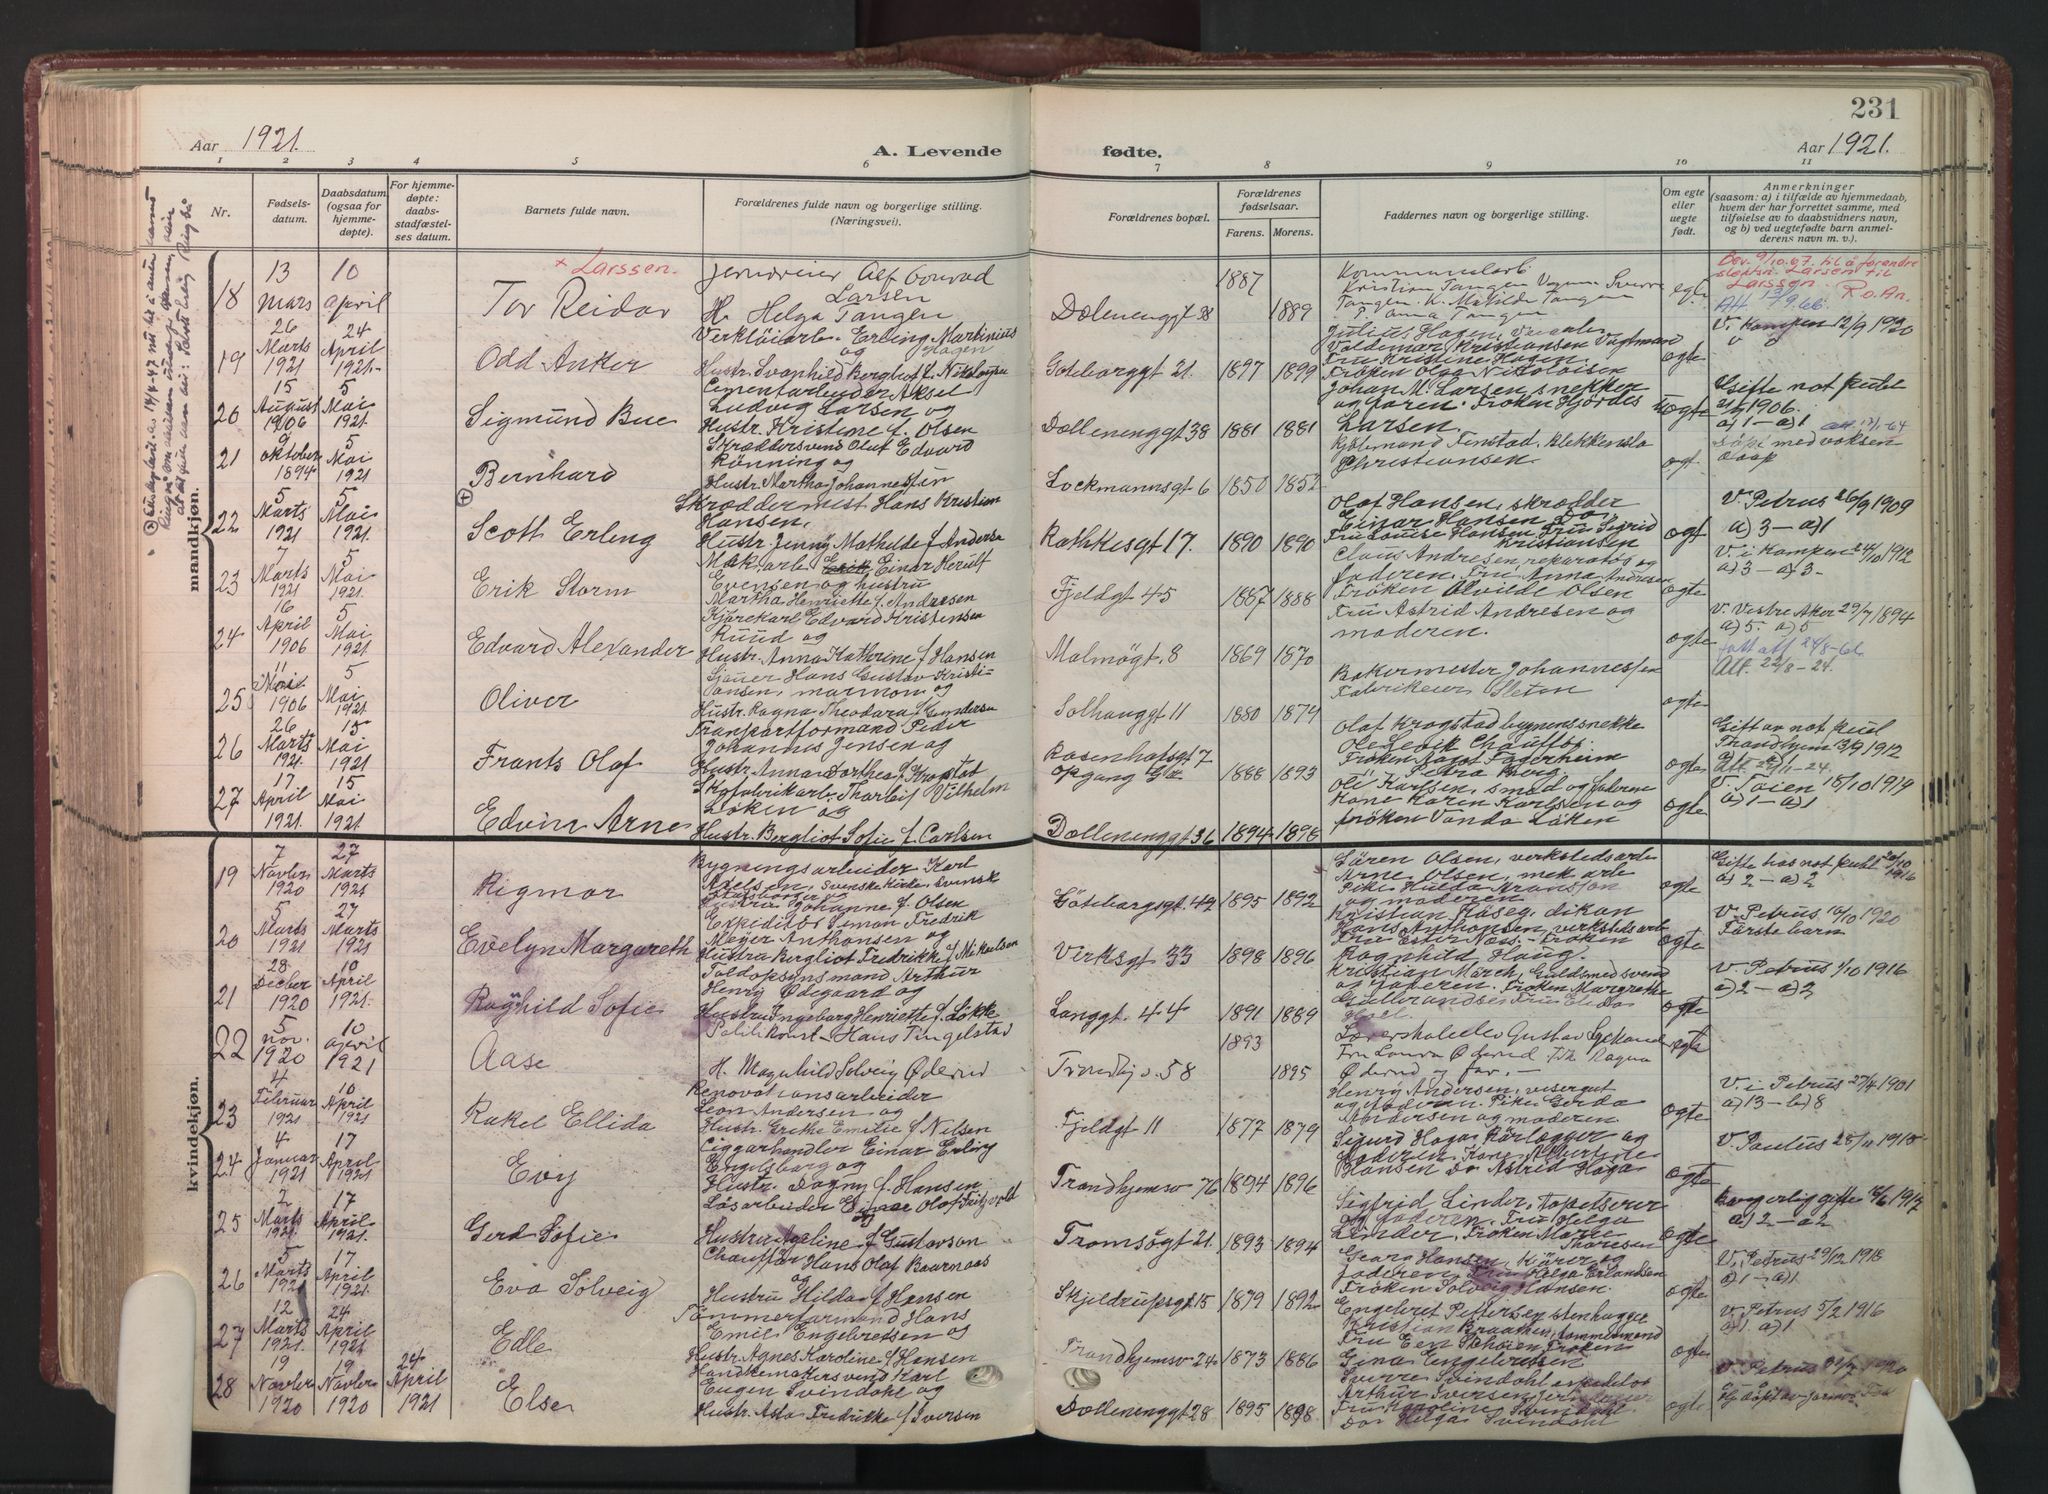 231
Aar 1921.
A. Levende
fødte.
Aar 1921.
1 2 3 4 5 6 7 8 9 10 11
Nr.
Fødsels-
datum.
Daabsdatum
(ogsaa for
hjemme-
døpte).
For hjemme-
døpte:
daabs-
stadfæstel-
ses datum.
Barnets fulde navn.
Forældrenes fulde navn og borgerlige stilling.
(Næringsvei).
Forældrenes bopæl.
Forældrenes
fødselsaar.
Farens. Morens.
Faddernes navn og borgerlige stilling.
Om egte
eller
uegte
født.
Anmerkninger
(saasom: a) i tilfælde av hjemmedaab,
hvem der har forrettet samme, med
tilføielse av to daabsvidners navn,
og b) ved uegtefødte barn anmel-
derens navn m. v.).
mandkjøn.
18
13
mars
10
april
× Larssen.
Tor Reidar
Alf Conrad
Larsen
H. Helga Tangen
Dælenenggt 38
1887
1889
Kristian Tangen
Tangen. K. Matilde Tangen
F. Anna Tangen
Larsen til
Larssen. R.o.An.
19
26
Marts
1921
24
April
1921.
Odd Anker
Verktøiarb. Erling Martinius
og Hagen
Hustr. Svanhild Bergliot f. Nikolaysen
Goteborggt 21.
1897 1899
Julius Hagen
Valdemar Kristiansen Vagtmand
Fru Kristine Hagen
Frøken Olga Nikolaisen
ægte
V. Kampen 12/9 1920
20
15
August
1906
5
Mai
1921
Sigmund Bue
Cementarbeider Aksel
Ludvig Larsen og
Hustr. Kristine f. Olsen
Dællenenggt 38
1881 1881
Johan M. Larsen snekker
og faren. Frøken Hjørdes
Larsen.
ægte
Gifte not publ
1906.
a) 1 – a) 1
21
9
oktober
1894
5
Mai
1921
Bernhard
Skræddersvend Oluf Edvard
Rønning og
Hustr. Martha Johannessen
Lockmannsgt 6
1850 1852
Christiansen
ægt.
22
5
Marts
1921
5
Mai
1921.
Scott Erling
Skræddermest Hans Kristian
Hansen,
Hustr. Jenny Mathilde f Andersen
Rathkesgt 17.
1890 1890
Olaf Hansen, skrædder
Einar Hansen Do
Fru Louise Hansen Fru Sigrid
Kristiansen
ægt
V. Petrus 26/9 1909
a) 3 – a) 1
23
7
Marts
1921
5
Mai
1921.
Erik Storm
Mek. arb. Einar Herulf
Evensen og hustru
Martha Henriette f. Andresen
Fjeldgt 45
1887 1888
Claus Andresen, reparatør og
faderen. Fru Anna Andresen
Frøken Alvilde Olsen
ægte
V. i Kampen 24/10 1912
a) 3 – a) 3 –
24
16
April
1906
5
Mai
1921.
Edvard Alexander
Kjørekarl Edvard Kristensen
Ruud og
Hustr. Anna Kathrine f Hansen
Malmøgt. 8
1869 1870
Fru Astrid Andresen og
moderen.
ægte
V. Vestre Aker 29/7 1894
a) 5. a) 5
25
11
1906
5
Mai
1921
Oliver
Sjauer Hans Gustav Kristi-
ansen, og
Hustr. Ragna Theodora f Gundersen
Solhauggt 11
1880 1874
Bakermester Johannessen
ægte
26
26
Marts
1921.
15
Mai
1921
Frants Olaf
Transportformand Peder
Johannes Jensen og
Hustr. Anna Dorthea f Krogstad
Rosenhofsgt 7
opgang
1888 1893
Olaf Krogstad bygningssnekke
Chauffør
Frøken Aagot Fagerheim
Petra Berg
ægte
Gift av not publ
Trondhjem 13/9 1912
27
17
April
1921.
15
Mai
1921.
Edvin Arne
Skofabrikarb. Tharleif Vilhelm
Løken og
Hustr. Bergliot Sofie f. Carlsen
Dællenenggt 36
1894 1898
Ole Karlsen, smed og faderen
Kone Karen Karlsen og
frøken Vanda Løken
ægte
V. Tøien 18/10 1919
a) 1 – a) 1
kvindekjøn.
19
7
Novbr
1920
27
Marts
1921
Rigmor
Bygningsarbeider Karl
Axelsen, svenske kirke, svensk
Hustru Johanne f Olsen
Göteborggt. 42
1895 1892
Søren Olsen, verkstedsarb
Arne Olsen, mek arb
Pike Hulda Aransson
og moderen
ægte
Gifte hos not publ 20/10 1916
a) 2 – a) 2
20
5
Marts
1921
27
Marts
1921
Evelyn Margareth
Expeditør Simon Fredrik
Meyer Anthonsen og
Hustru Bergliot Fredrikke f Mikelsen
Verksgt 33
1898 1896
Hans Anthonsen, verkstedsarb
Fru Ester Næss – Frøken
Ragnhild Haug.
ægte
V. Petrus 16/10 1920
Første barn
21
28
Decber
1920
10
April
1921.
Ragnhild Sofie
Toldopsynsmand Arthur
Henry Ødegaard og
Hustru Ingeborg Henriette f. Løkke
Langgt. 44
1891 1889
Kristian March, Guldsmedsvend
og faderen. Frøken Margrethe
ægte
V. Petrus 1/10 1916
a) 2 – a) 2
22
5
nov.
1920
10
april
1921
Aase
Politikonst – Hans Tingelstad
H. Magnhild Solveig Øderud
Trondhj.v. 58
1893
1895
Fru Laura Øderud Frk Ragna
Øderud og far. –
ægte
23
4
Februar
1921
10
April
1921
Rakel Ellida
Renovationsarbeider
Leon Andersen og
Hustr. Grethe Emilie f Nilsen
Fjeldgt 11
1877 1879
Henry Andersen, visergut
og faderen. Pike Gerda
Andersen og moderen
ægte
V. i Petrus 27/4 1901
a) 13 – b) 8
24
4
Januar
1921
17
April
1921
Evy
Ciggarhandler Einar Erling
Engelsborg og
Hustr. Dagny f Hansen
Trondhjemsv 76
1894 1896
Hansen Do Astrid Haga
ægte
V. Paulus
25
2
Marts
1921.
17
April
1921.
Gerd Sofie
Løsarbeider Einar Olaf
Hustru Ageline f Gustavson
Tromsøgt 21.
1893 1894
Sigfrid Linder, tapetserer
og faderen. Fru Helga
Linder, Frøken Marie
Thoresen
ægte
borgerlig gifte
a) 2 – a 2
26
5
Marts
1921
17
April
1921
Eva Solveig
Chauffør Hans Olaf Baarnaas
og
Hustru Hilda f Hansen
Skjeldrupsgt 15
1879 1892
Georg Hansen, Kjører og
faderen, Fru Helga Erlandsen
Frøken Solveig Hansen.
ægte
V. Petrus 29/12 1918
a) 1 – a) 1
27
12
Marts
1921
24
April
1921
Edle
Tømmerformand Hans
Emil Engebretsen og
Hustr. Agnes Karoline f Hansen
Trondhjemsv 24
1873 1886
Engebret Pettersen stenhugger
Kristian Braathen, tømmermand
Gina Engebretsen
ægte
V. Petrus 5/2 1916
a) 1. a) 1
28
19
Novbr
1920
19
Novbr
1920
24
April
1921
Else
Handskemakersvend Karl
Eugen Svindahl og
Hustr. Asta Fredrikke f Iversen
Dællenenggt 28
1895 1898
Sverre Svindahl expeditør
Arthur Iversen
Fru Karoline Svindahl
Do Helga Svindahl
ægte
V. Petrus 1920